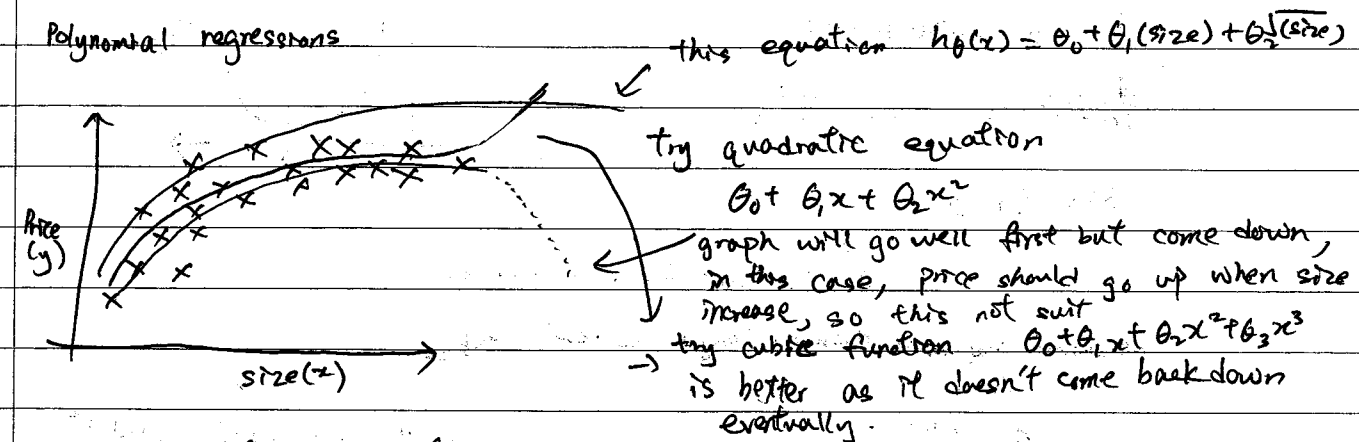 Polynomial regressions
this equation hθ(x) = θ₀ + θ₁(size) + θ₂√(size)
try quadratic equation
θ₀ + θ₁x + θ₂x²
graph will go well first but come down,
in this case, price should go up when size
increase, so this not suit
try cubic function θ₀+θ₁x+θ₂x²+θ₃x³
is better as it doesn't come back down
eventually.
Price
(y)
size(x)